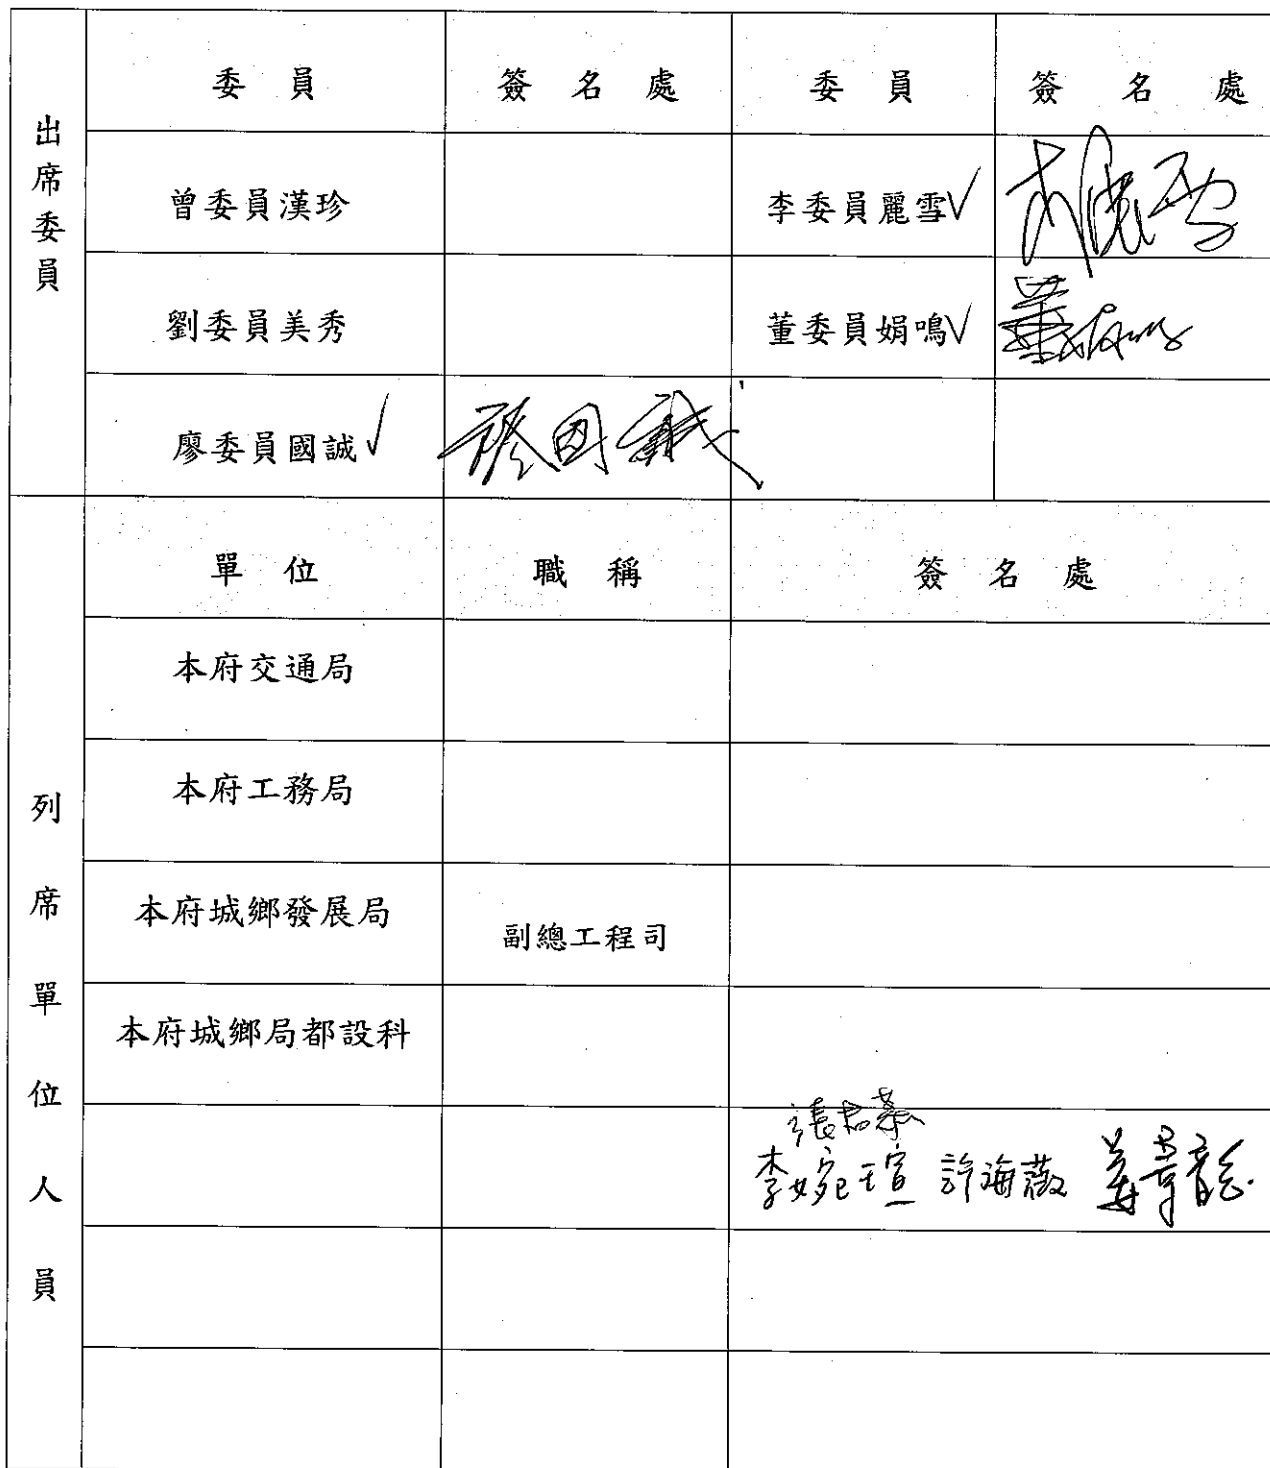 出席委員
委員 簽名處 委員 簽名處
曾委員漢珍 李委員麗雪√ 李麗雪
劉委員美秀 董委員娟鳴√ 董娟鳴
廖委員國誠√ 廖国誠
列席單位人員
單位 職稱 簽名處
本府交通局
本府工務局
本府城鄉發展局 副總工程司
本府城鄉局都設科
李婉瑄 許海薇